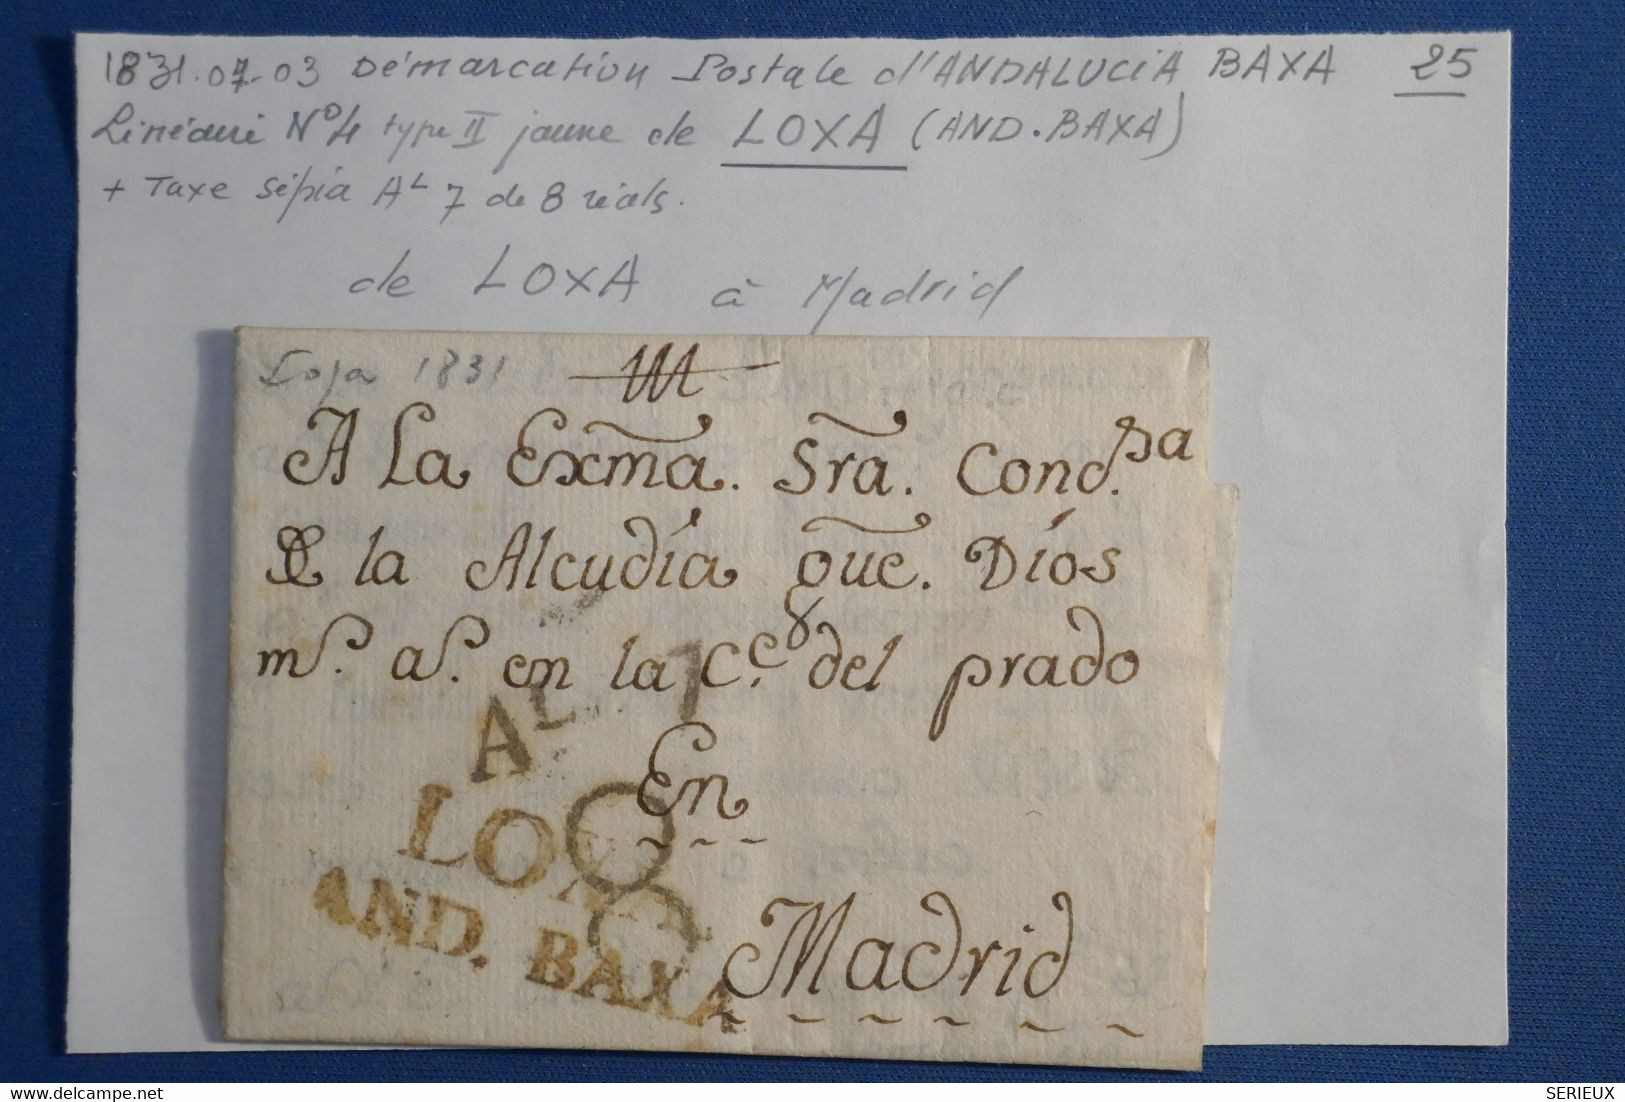 1831.07.03 Démarcation Postale d'ANDALUCIA BAXA 25
Linéaire N°4 type II jaune de LOXA (AND.BAXA)
+ Taxe sépia AL 7 de 8 réals.
de LOXA à Madrid
Loja 1831
A La Exma. Sra. Condsa
De la Alcudia que. Dios
ms. as. en la Ce. del prado
En
Madrid
AL 7
8
LOXA
AND. BAXA
SERIEUX